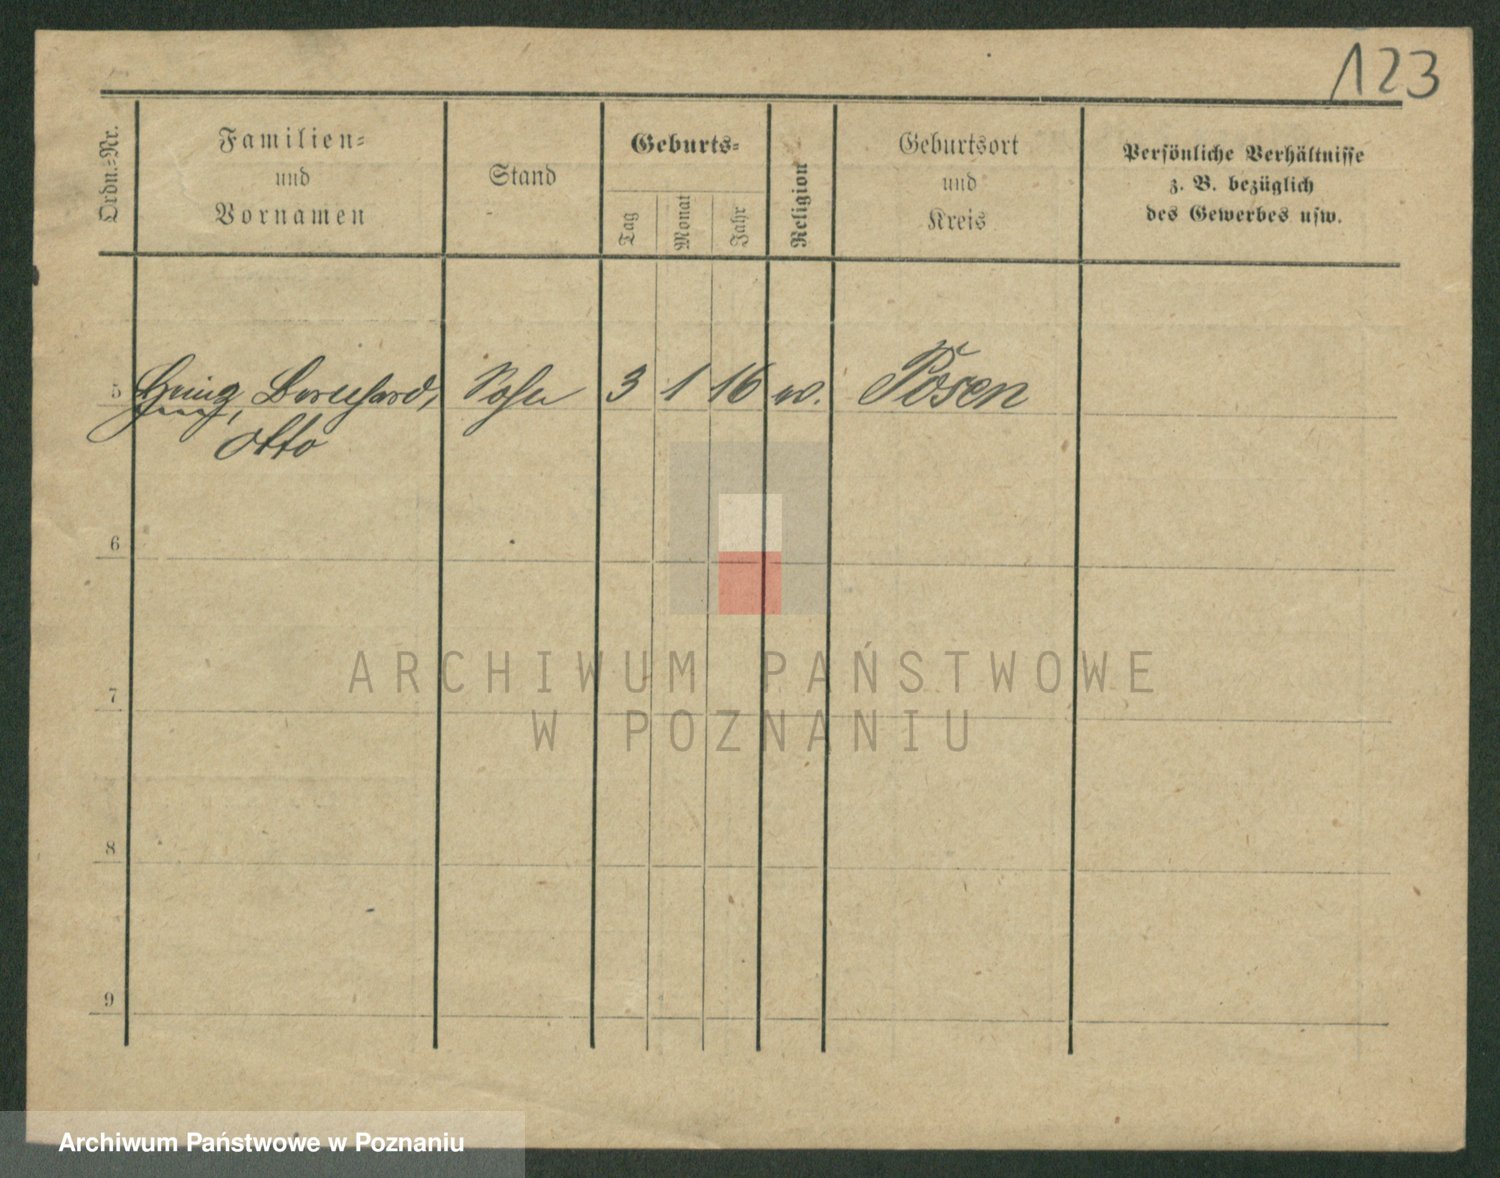 123
Ordn.=Nr.
Familien=
und
Vornamen
Stand
Geburts=
Tag
Monat
Jahr
Religion
Geburtsort
und
Kreis
Persönliche Verhältnisse
z. B. bezüglich
des Gewerbes usw.
5 Heinz, Bernhard, Sohn 3 1 16 ev. Posen
Otto
6
7
8
9
ARCHIWUM PAŃSTWOWE
W POZNANIU
Archiwum Państwowe w Poznaniu